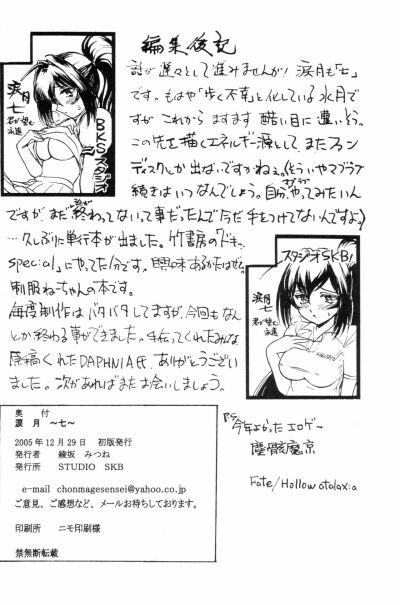 編集後記
話が遅々として進みませんが!涙月も「七」
です。もはや「歩く不幸」と化している水月で
すが これから ますます 酷い目に遭いそう。
この先を描くエネルギー源として、またファン
ディスクしか出ないですかねぇ。(そういやマブラヴ
続きはいつなんでしょう。自分、やってみたいん
ですが、まだ終わってないって事だったんで今だ手をつけてないんですよ)
…久しぶりに単行本が出ました。竹書房の「ドキッ
special」にやってた分です。興味あるかたはぜひ。
制服ねーちゃんの本です。
毎度制作はバタバタしてますが、今回もなん
とか終わる事ができました。手伝ってくれたみんな
原稿くれたDAPHNIA氏、ありがとうござい
ました。次があればまたお会いしましょう。
涙月
七
君が望む
永遠
BKSスタジオ
スタジオSKB!
涙月
七
君が望む
永遠
奥 付
涙 月 ~七~
2005年12月29日 初版発行
発行者 綾坂 みつね
発行所 STUDIO SKB
e-mail chonmagesensei@yahoo.co.jp
ご意見、ご感想など、メールお待ちしております。
印刷所 ニモ印刷様
禁無断転載
PS 今年よかったエロゲー
塵骸魔京
Fate/Hollow atalaxia